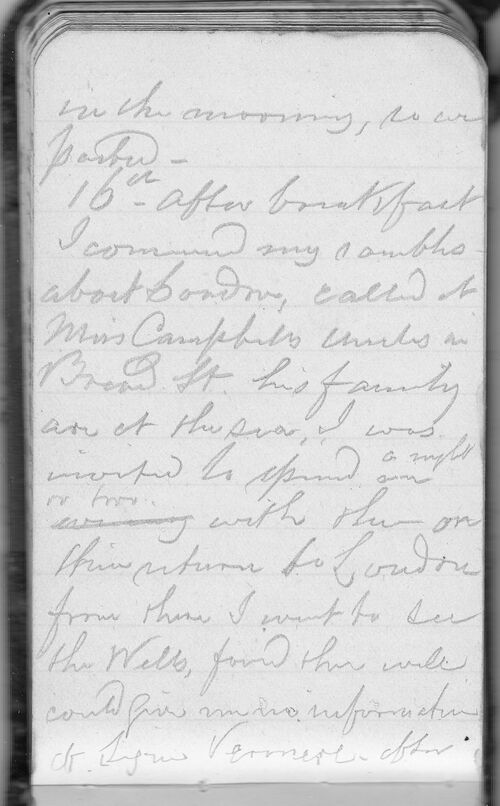 in the morning, so we
parted -
16th - After breakfast
I commenced my rambles
about London, called at
Miss Campbells uncles in
Broad St. his family
are at the sea, I was
invited to spend a night
or two
evening with them on
their return to London
from there I went to see
the Wells, found them well
could give me no information
of after